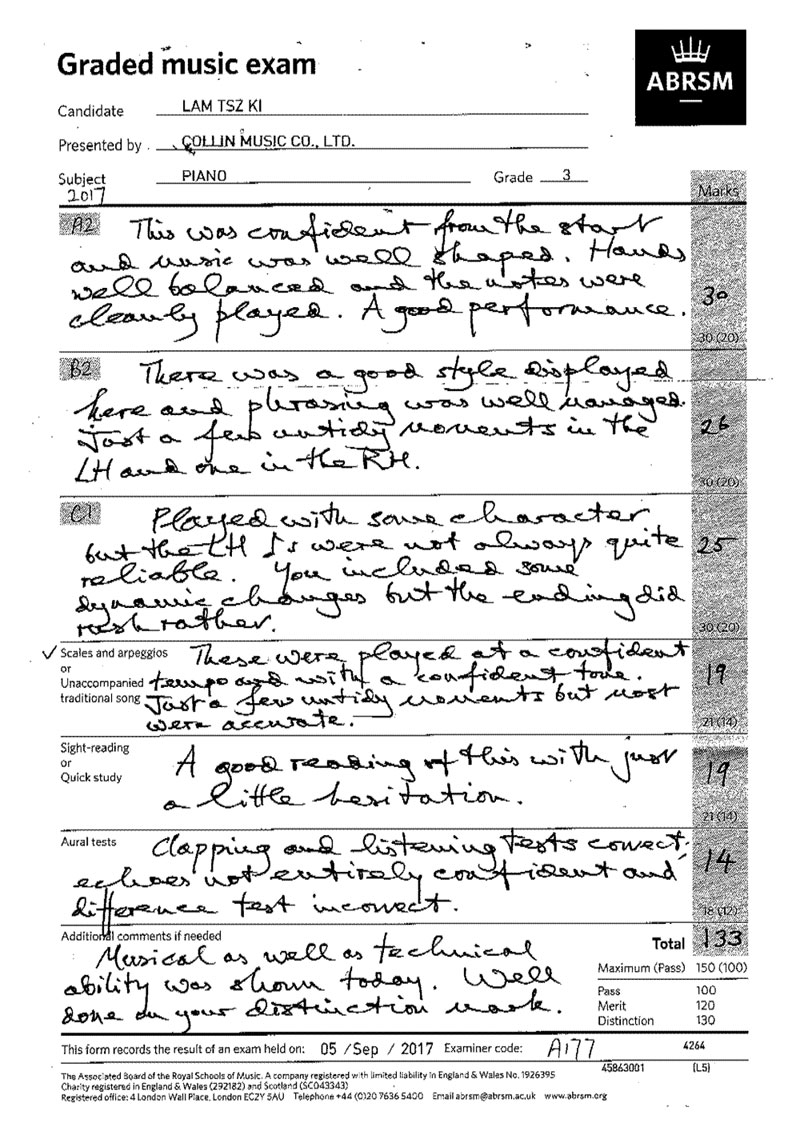 Graded music exam
ABRSM
Candidate LAM TSZ KI
Presented by COLLIN MUSIC CO., LTD.
Subject PIANO Grade 3
2017 Marks
A2 This was confident from the start
and music was well shaped. Hands
well balanced and the notes were
cleanly played. A good performance.
30
30 (20)
B2 There was a good style displayed
here and phrasing was well managed.
Just a few untidy moments in the
LH and one in the RH.
26
30 (20)
C1 Played with some character
but the LH ♩'s were not always quite
reliable. You included some
dynamic changes but the ending did
rush rather.
25
30 (20)
✓ Scales and arpeggios
or
Unaccompanied
traditional song
These were played at a confident
tempo and with a confident tone.
Just a few untidy moments but most
were accurate.
19
21 (14)
Sight-reading
or
Quick study
A good reading of this with just
a little hesitation.
19
21 (14)
Aural tests
Clapping and listening tests correct;
echoes not entirely confident and
difference test incorrect.
14
18 (12)
Additional comments if needed
Musical as well as technical
ability was shown today. Well
done on your distinction mark.
Total 133
Maximum (Pass) 150 (100)
Pass 100
Merit 120
Distinction 130
This form records the result of an exam held on: 05 / Sep / 2017 Examiner code: A177 4264
45863001 (L5)
The Associated Board of the Royal Schools of Music. A company registered with limited liability in England & Wales No. 1926395
Charity registered in England & Wales (292182) and Scotland (SC043343)
Registered office: 4 London Wall Place, London EC2Y 5AU Telephone +44 (0)20 7636 5400 Email abrsm@abrsm.ac.uk www.abrsm.org